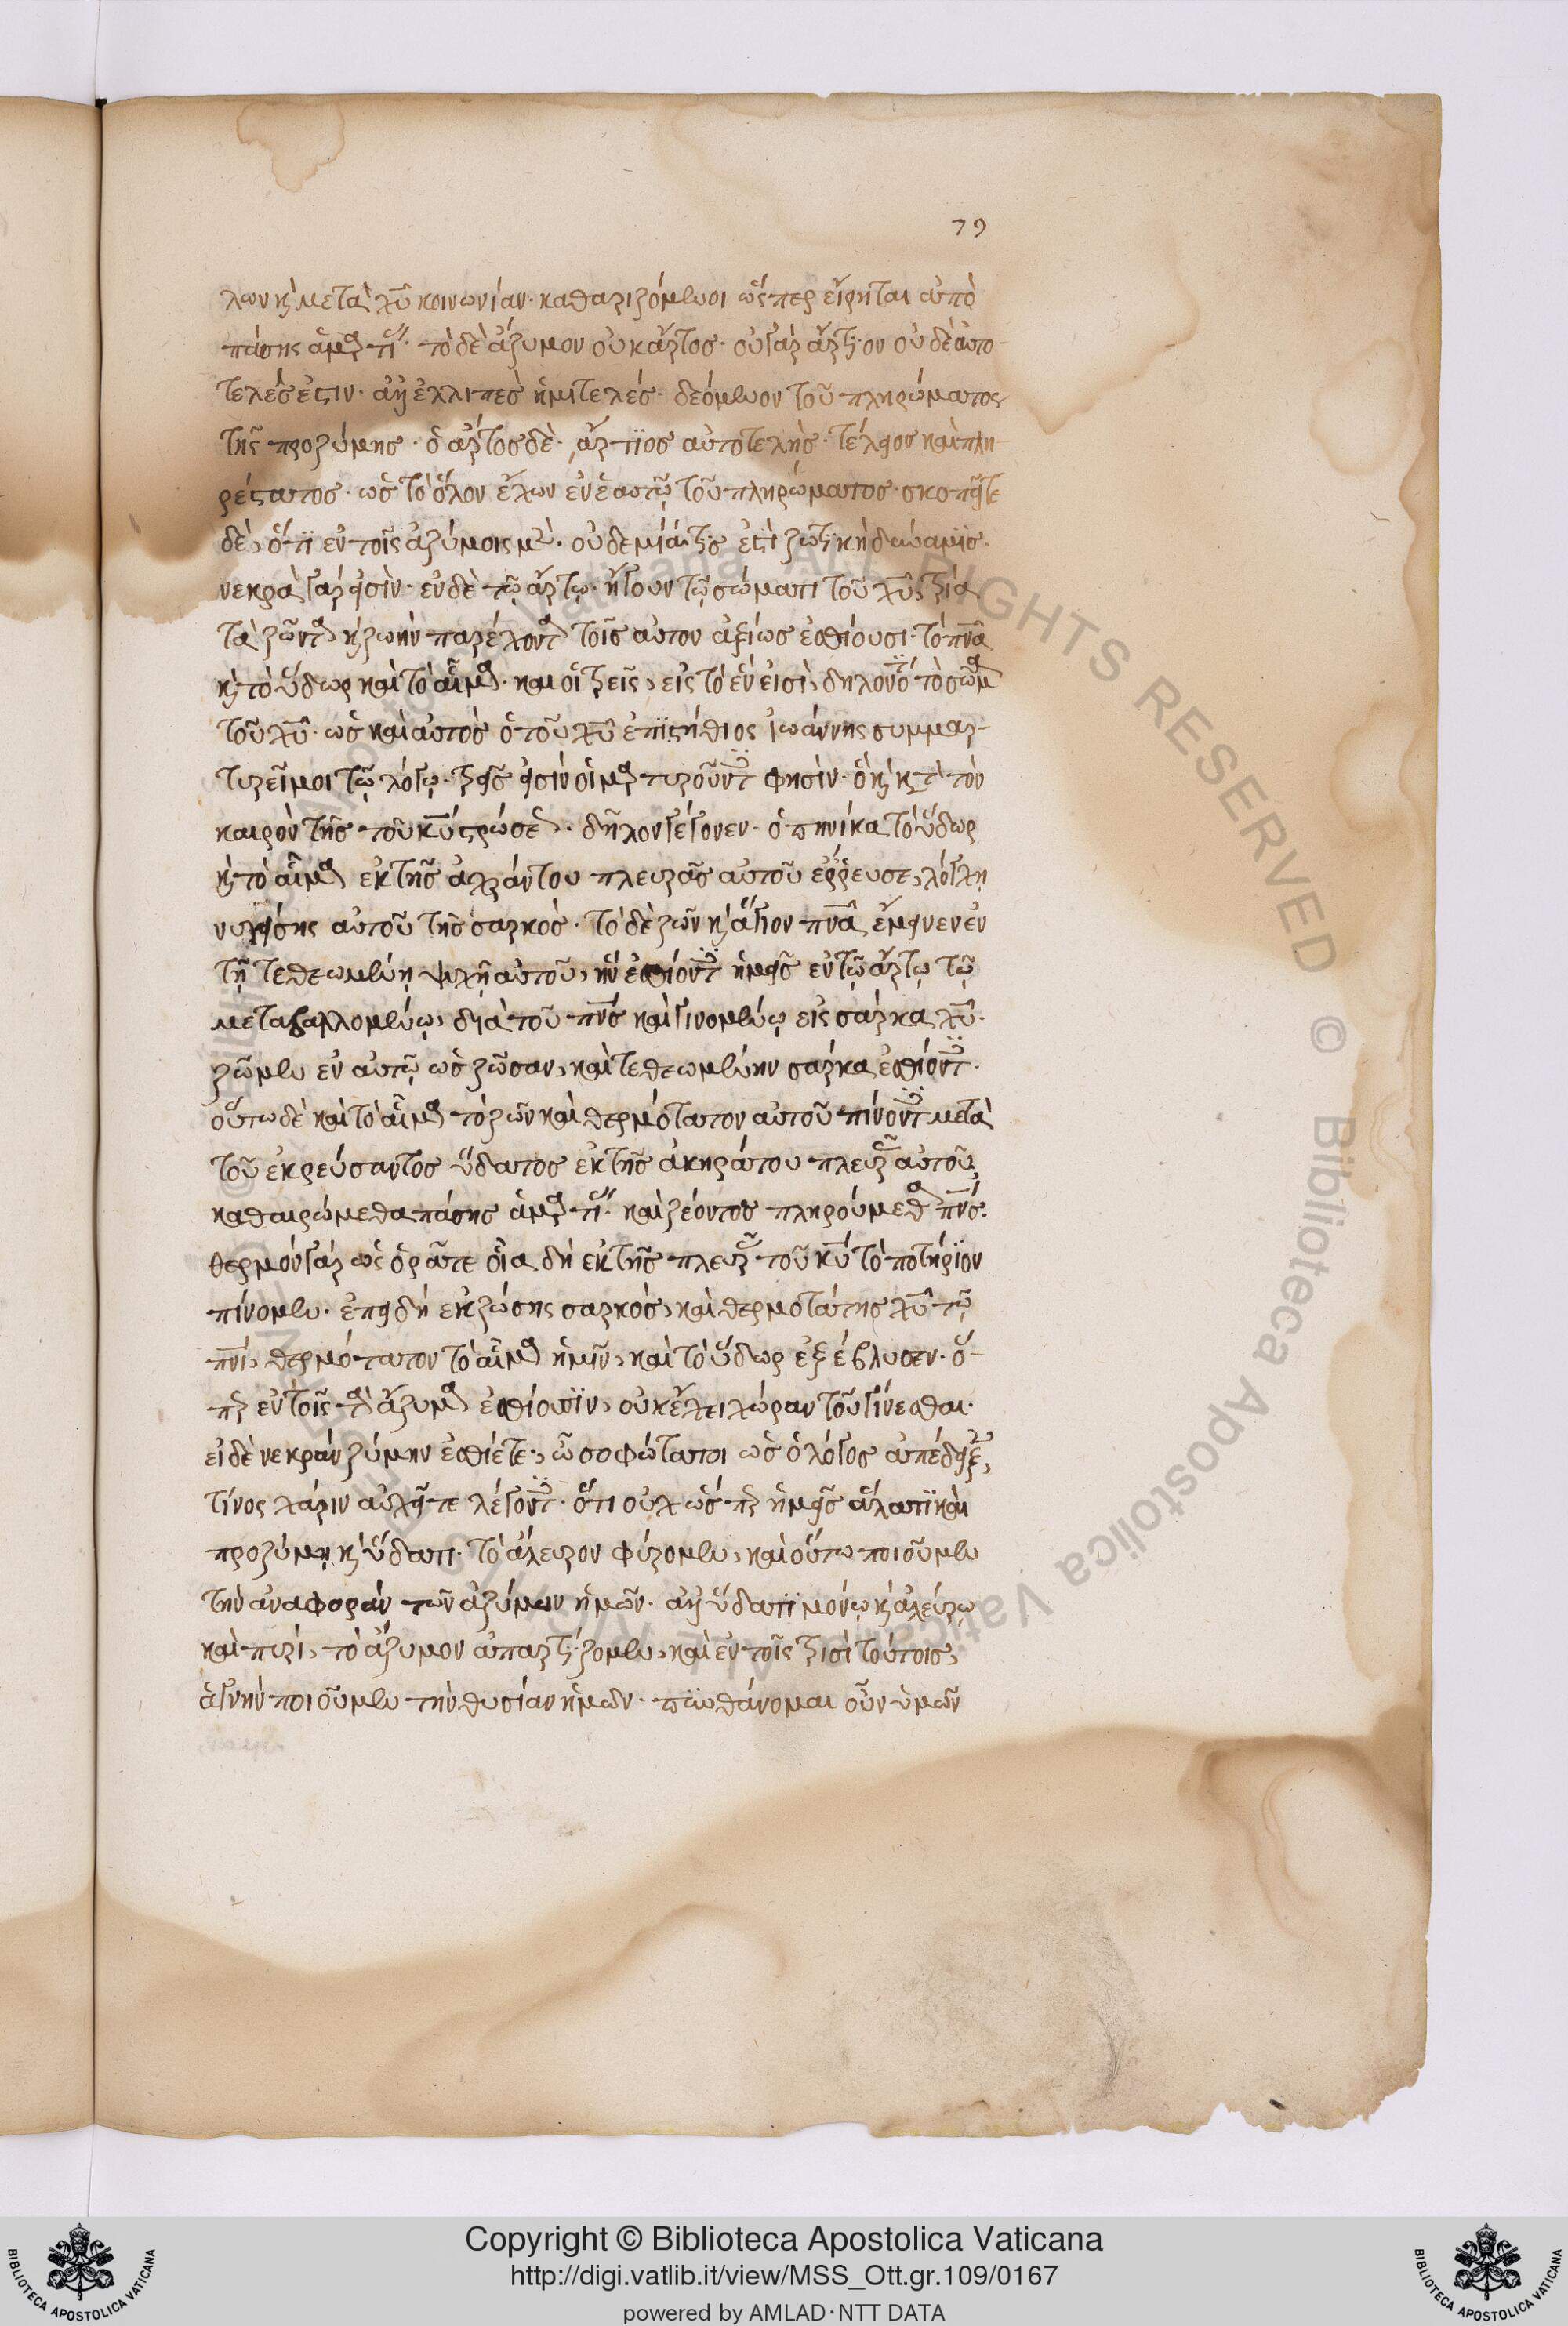 79
λων κὶ μετὰ χῦ κοινωνίαν· καθαριζόμενοι ὥσπερ εἴρηται ἀπὸ
πάσης ἁμαρτίας· τὸ δὲ ἄζυμον οὐκ ἄρτος· οὐ γὰρ ἄρτιον οὐδὲ αὐτο-
τελές ἐστιν· ἀλλ' ἐλλιπὲς ἡμιτελές· δεόμενον τοῦ πληρώματος
τῆς προζύμης· ὁ ἄρτος δὲ· ἄρτιος αὐτοτελὴς· τέλειος καὶ πλη-
ρέστατος· ὡς τὸ ὅλον ἔχων ἐν ἑαυτῷ τοῦ πληρώματος· σκοπεῖτε
δὲ, ὅτι ἐν τοῖς ἀζύμοις μὲν· οὐδεμιά τις ἐστὶ ζωτικὴ δύναμις·
νεκρὰ γάρ εἰσὶν· ἐν δὲ τῷ ἄρτῳ· ἤγουν τῷ σώματι τοῦ χῦ, τρία
τὰ ζῶντα κὶ ζωὴν παρέχοντα τοῖς αὐτὸν ἀξίως ἐσθίουσι· τό πνᾶ
κὶ τὸ ὕδωρ καὶ τὸ αἷμα· καὶ οἱ τρεῖς, εἰς τὸ ἕν εἰσὶ, δηλονότι τὸ σῶμα
τοῦ χῦ· ὡς καὶ αὐτὸς ὁ τοῦ χῦ ἐπιστήθιος ἰωάννης συμμαρ-
τυρεῖ μοι τῷ λόγῳ· τρεῖς εἰσίν οἱ μαρτυροῦντες φησὶν· ὃ κὶ κατὰ τὸν
καιρὸν τῆς τοῦ κῦ σταυρώσεως· δῆλον γέγονεν· ὁπηνίκα τὸ ὕδωρ
κὶ τὸ αἷμα ἐκ τῆς ἀχράντου πλευρᾶς αὐτοῦ ἐρρευσε, λόγχῃ
νυγείσης αὐτοῦ τῆς σαρκὸς· τὸ δὲ ζῶν κὶ ἅγιον πνᾶ, ἔμεινεν ἐν
τῇ τεθεωμένῃ ψυχῇ αὐτοῦ, ἣν ἐσθίοντες ἡμεῖς ἐν τῷ ἄρτῳ τῷ
μεταβαλλομένῳ, διὰ τοῦ πνς καὶ γινομένῳ εἰς σάρκα χῦ·
ζῶμεν ἐν αὐτῷ ὡς ζῶσαν, καὶ τεθεωμένην σάρκα ἐσθίοντες·
οὕτω δὲ καὶ τὸ αἷμα τὸ ζῶν καὶ θερμότατον αὐτοῦ πίνοντες μετὰ
τοῦ ἐκρεύσαντος ὕδατος ἐκ τῆς ἀκηράτου πλευρᾶς αὐτοῦ,
καθαιρώμεθα πάσης ἁμαρτίας· καὶ ζέοντος πληρούμεθα πνς·
θερμὸν γὰρ ὡς ὁρᾶτε οἷα δὴ ἐκ τῆς πλευρᾶς τοῦ κῦ τὸ ποτήριον
πίνομεν· ἐπειδὴ ἐκ ζώσης σαρκὸς, καὶ θερμοτάτης χῦ τῷ
πνί, θερμότατον τὸ αἷμα ἡμῖν, καὶ τὸ ὕδωρ ἐξέβλυσεν· ὅ-
περ ἐν τοῖς τὰ ἄζυμα ἐσθίουσιν, οὐκ ἔχει χώραν τοῦ γίνεσθαι·
εἰ δὲ νεκρὰν ζύμην ἐσθίετε, ὦ σοφώτατοι ὡς ὁ λόγος ἀπέδειξε,
τίνος χάριν αὐχεῖτε λέγοντες· ὅτι οὐχ ὥσπερ ἡμεῖς ἅλατι καὶ
προζύμῃ κὶ ὕδατι· τὸ ἄλευρον φύρομεν, καὶ οὕτω ποιοῦμεν
τὴν ἀναφορὰν τῶν ἀζύμων ἡμῶν· ἀλλ' ὕδατι μόνῳ κὶ ἀλεύρῳ
καὶ πυρί, τὸ ἄζυμον ἀπαρτίζομεν, καὶ ἐν τοῖς τρισὶ τούτοις,
ἁγνὴν ποιοῦμεν τὴν θυσίαν ἡμῶν· πυνθάνομαι οὖν ὑμῶν
Copyright © Biblioteca Apostolica Vaticana
http://digi.vatlib.it/view/MSS_Ott.gr.109/0167
powered by AMLAD·NTT DATA